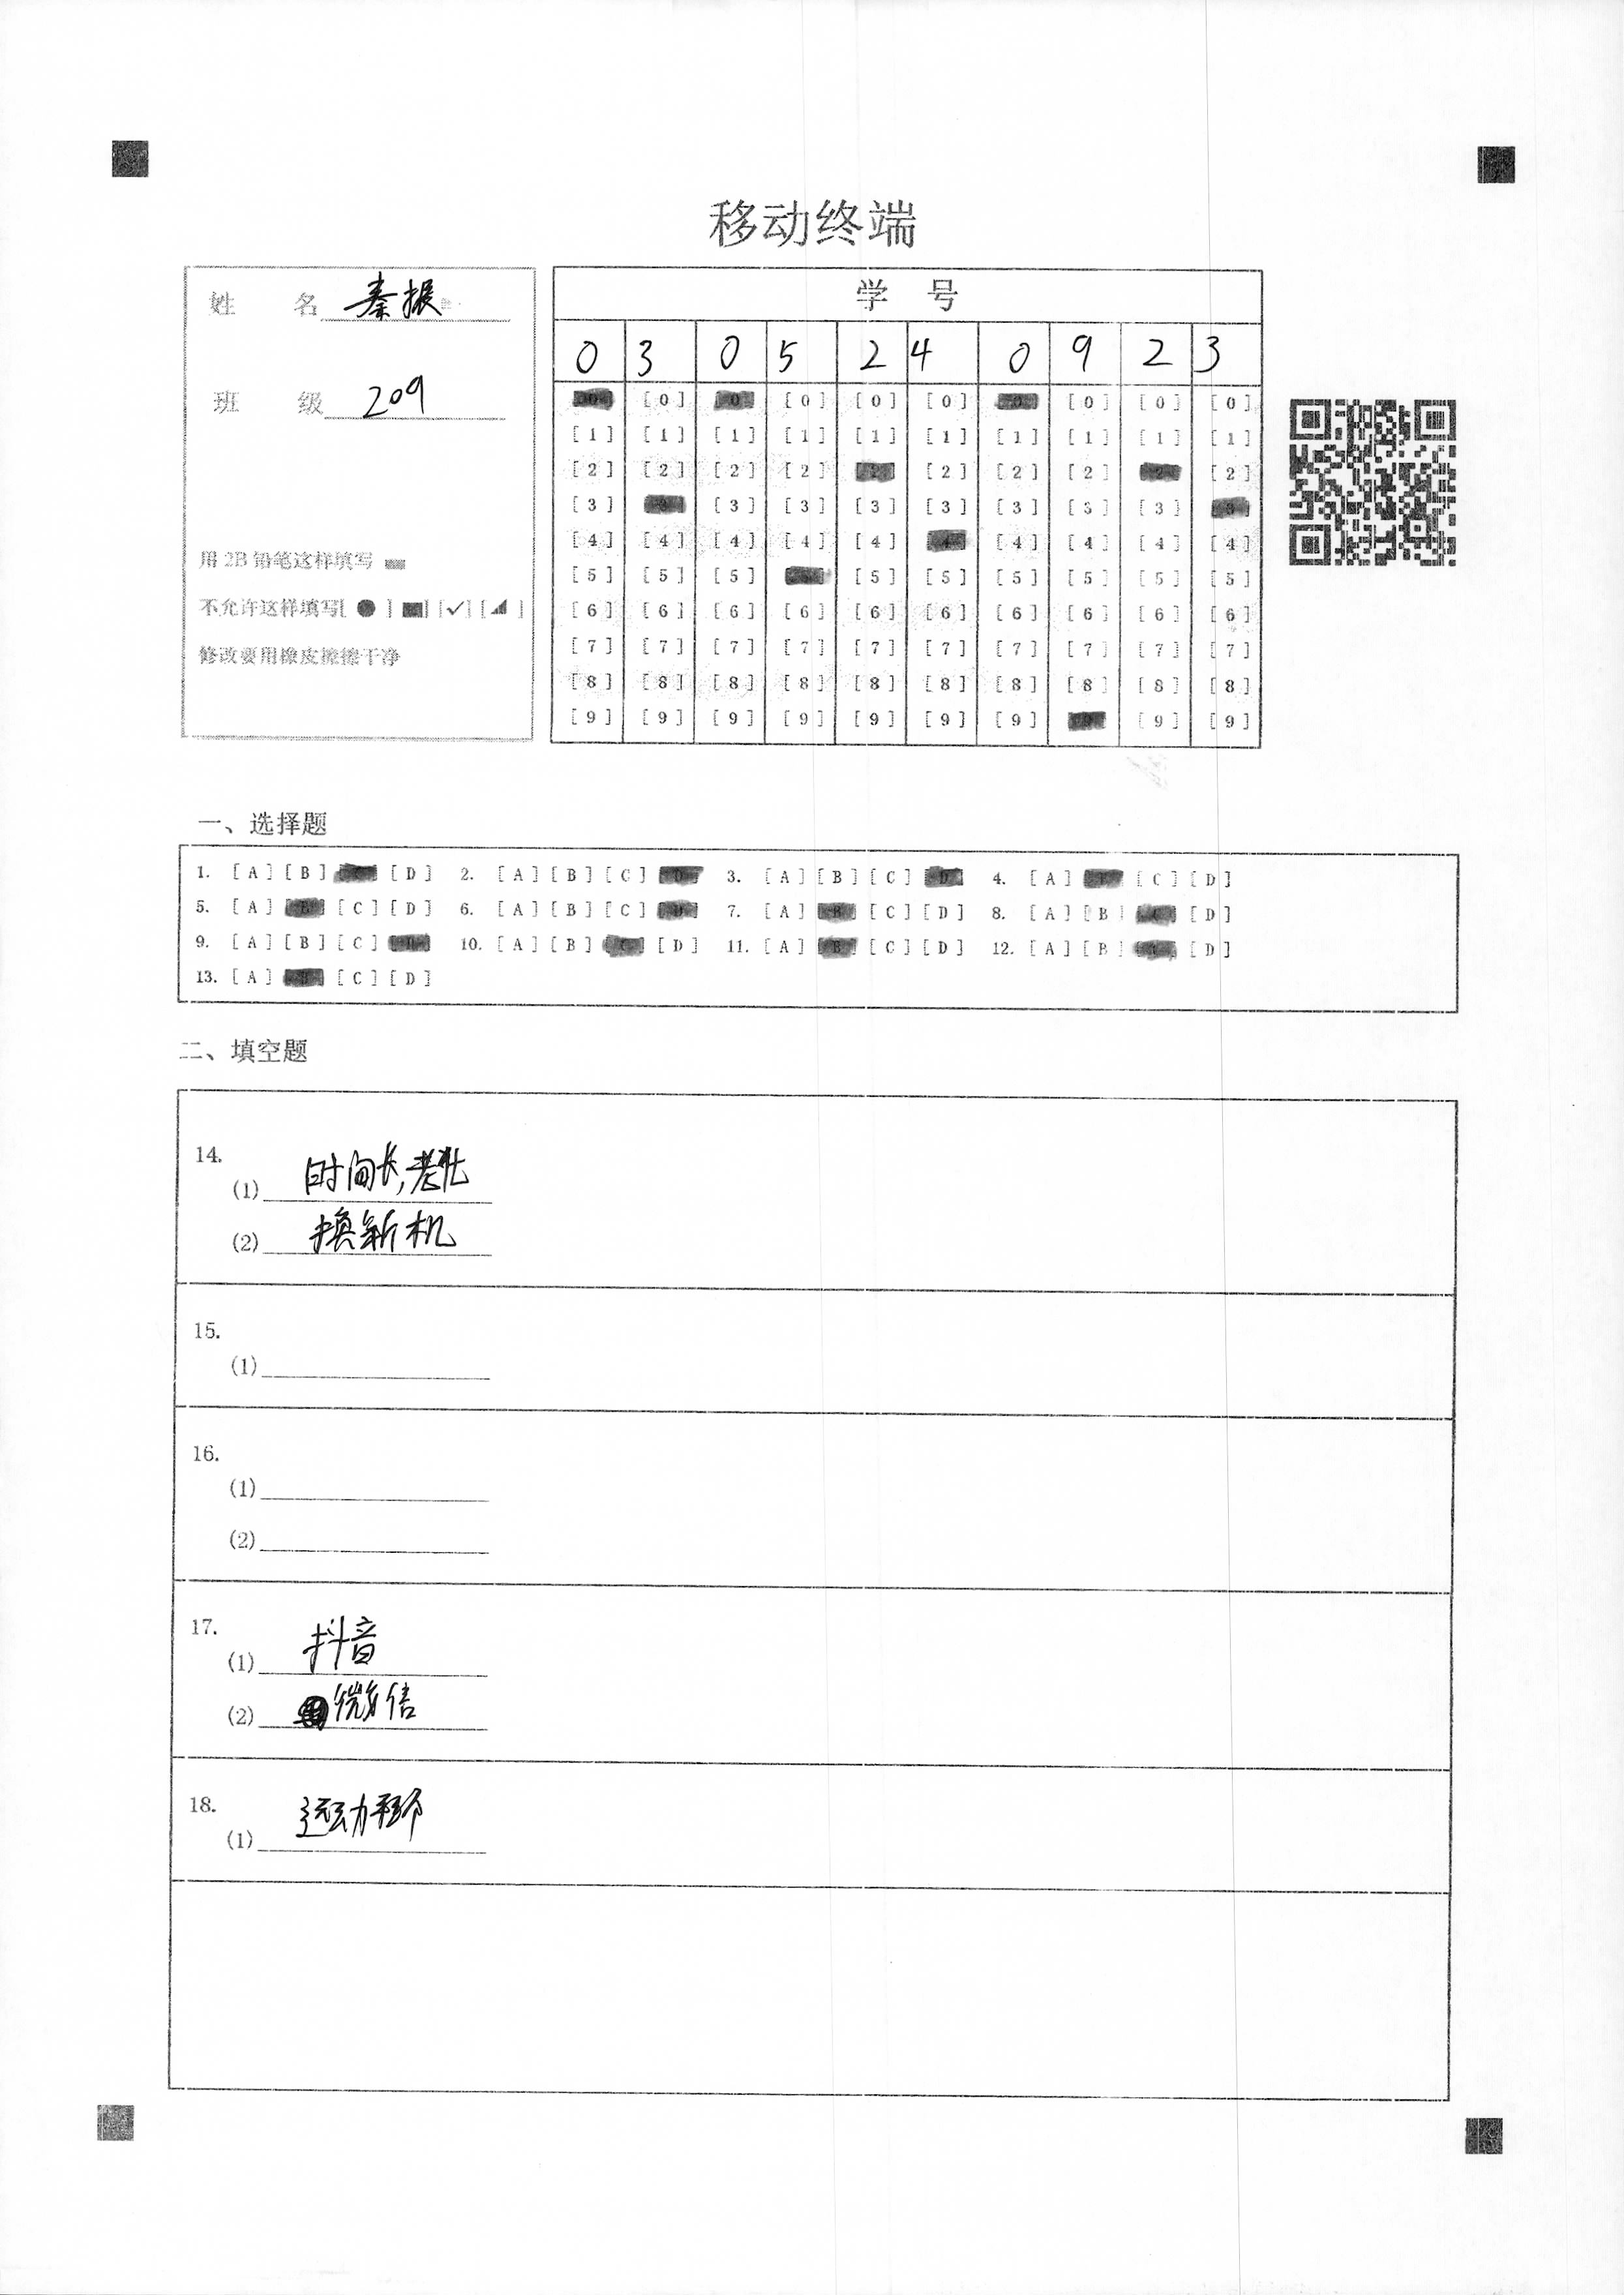 移动终端
姓 名 秦振
班 级 209
用 2B 铅笔这样填写
不允许这样填写[ ● ] [■] [✓] [◢ ]
修改要用橡皮擦擦干净
学 号
0 3 0 5 2 4 0 9 2 3
[0] [0] [0] [0] [0] [0] [0]
[1] [1] [1] [1] [1] [1] [1] [1] [1] [1]
[2] [2] [2] [2] [2] [2] [2] [2]
[3] [3] [3] [3] [3] [3] [3] [3]
[4] [4] [4] [4] [4] [4] [4] [4] [4]
[5] [5] [5] [5] [5] [5] [5] [5] [5]
[6] [6] [6] [6] [6] [6] [6] [6] [6] [6]
[7] [7] [7] [7] [7] [7] [7] [7] [7] [7]
[8] [8] [8] [8] [8] [8] [8] [8] [8] [8]
[9] [9] [9] [9] [9] [9] [9] [9] [9]
一、选择题
1. [A] [B] [D] 2. [A] [B] [C] 3. [A] [B] [C] 4. [A] [C] [D]
5. [A] [C] [D] 6. [A] [B] [C] 7. [A] [C] [D] 8. [A] [B] [D]
9. [A] [B] [C] 10. [A] [B] [D] 11. [A] [C] [D] 12. [A] [B] [D]
13. [A] [C] [D]
二、填空题
14.
(1) 时间长,老化
(2) 换新机
15.
(1)
16.
(1)
(2)
17.
(1) 抖音
(2) 微信
18.
(1) 运动